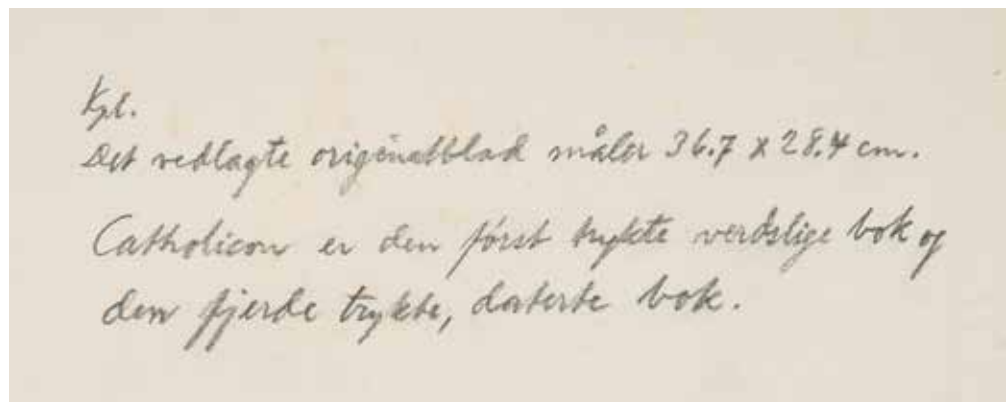 Kpl.
Det vedlagte originalblad måler 36.7 x 28.4 cm.
Catholicon er den først trykte verdslige bok og
den fjerde trykte, daterte bok.